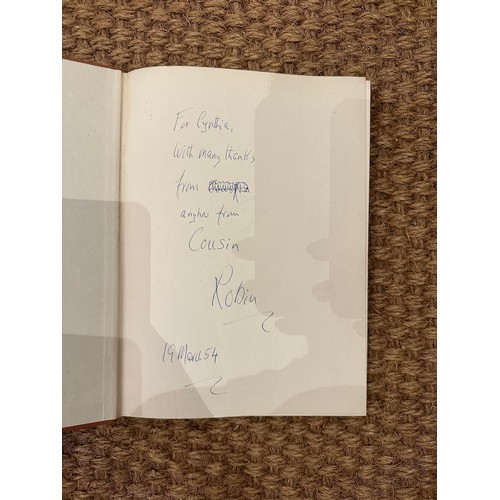 For Cynthia,
With many thanks
from
anyhow from
Cousin
Robin
19 March 54